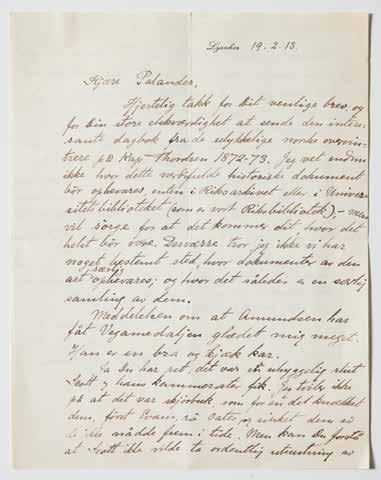 Lysaker 19.2.13.
Kjære Palander,
Hjertelig takk for Dit venlige brev, og
for Din store elskværdighet at sende den interes-
sante dagbok fra de ulykkelige norske overvin-
trere på Kap Thordsen 1872-73. Jeg vet endnu
ikke hvor dette værdifulde historiske dokument
bör opbevares, enten i Riksarkivet eller i Univer-
sitetsbiblioteket (som er vort Riksbibliotek), - men
vil sörge for at det kommer dit, hvor det
helst bör være. Desværre tror jeg ikke vi har
noget bestemt sted, hvor dokumenter av den
art særlig opbevares, og hvor det således er en særlig
samling av dem.
Meddelelsen om at Amundsen har
fåt Vegamedaljen glædet mig meget.
Han er en bra og kjæk kar.
Ja Du har ret, det var et uhyggelig slut
Scott og hans kammerater fik. Jeg tviler ikke
på at det var skjörbuk, som for en del knækket
dem, först Evans, så Oates, og sinket dem så
de ikke nådde frem i tide. Men kan Du forstå
at Scott ikke vilde ta ordentlig utrustning av